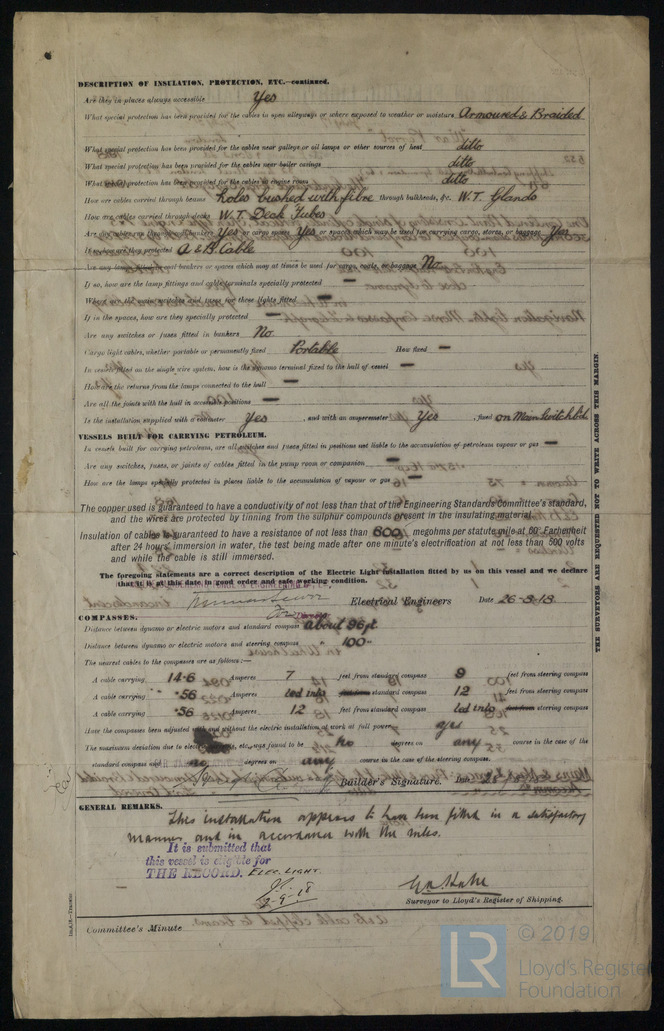 DESCRIPTION OF INSULATION, PROTECTION, ETC.—continued.
Are they in places always accessible Yes
What special protection has been provided for the cables in open alleyways or where exposed to weather or moisture Armoured & Braided
What special protection has been provided for the cables near galleys or oil lamps or other sources of heat ditto
What special protection has been provided for the cables near boiler casings ditto
What special protection has been provided for the cables in engine room ditto
How are cables carried through beams holes bushed with fibre through bulkheads, &c. W.T. Glands
How are cables carried through decks W.T. Deck Tubes
Are any cables run through coal bunkers Yes or cargo spaces Yes or spaces which may be used for carrying cargo, stores, or baggage Yes
If so, how are they protected A & B. Cable
Are any lamps fitted in coal bunkers or spaces which may at times be used for cargo, coals, or baggage No
If so, how are the lamp fittings and cable terminals specially protected —
Where are the main switches and fuses for these lights fitted —
If in the spaces, how are they specially protected —
Are any switches or fuses fitted in bunkers No
Cargo light cables, whether portable or permanently fixed Portable How fixed —
In vessels fitted on the single wire system, how is the dynamo terminal fixed to the hull of vessel —
How are the returns from the lamps connected to the hull —
Are all the joints with the hull in accessible positions —
Is the installation supplied with a voltmeter Yes, and with an amperemeter Yes, fixed on Main Switchbd
VESSELS BUILT FOR CARRYING PETROLEUM.
In vessels built for carrying petroleum, are all switches and fuses fitted in positions not liable to the accumulation of petroleum vapour or gas —
Are any switches, fuses, or joints of cables fitted in the pump room or companion —
How are the lamps specially protected in places liable to the accumulation of vapour or gas —
The copper used is guaranteed to have a conductivity of not less than that of the Engineering Standards Committee's standard,
and the wires are protected by tinning from the sulphur compounds present in the insulating material.
Insulation of cables is guaranteed to have a resistance of not less than 600 megohms per statute mile at 60° Farenheit
after 24 hours' immersion in water, the test being made after one minute's electrification at not less than 500 volts
and while the cable is still immersed.
The foregoing statements are a correct description of the Electric Light installation fitted by us on this vessel and we declare
that it is at this date in good order and safe working condition.
Electrical Engineers Date 26-8-18
COMPASSES.
Distance between dynamo or electric motors and standard compass about 96 ft
Distance between dynamo or electric motors and steering compass 100 "
The nearest cables to the compasses are as follows:—
A cable carrying 14.6 Amperes 7 feet from standard compass 9 feet from steering compass
A cable carrying .56 Amperes led into standard compass 12 feet from steering compass
A cable carrying .56 Amperes 12 feet from standard compass led into steering compass
Have the compasses been adjusted with and without the electric installation at work at full power yes
The maximum deviation due to electric currents, etc., was found to be no degrees on any course in the case of the
standard compass and no degrees on any course in the case of the steering compass.
Builder's Signature. Date
GENERAL REMARKS.
This installation appears to have been fitted in a satisfactory
manner and in accordance with the rules.
It is submitted that
this vessel is eligible for
THE RECORD. ELEC. LIGHT.
2-9-18
Surveyor to Lloyd's Register of Shipping.
Committee's Minute
THE SURVEYORS ARE REQUESTED NOT TO WRITE ACROSS THIS MARGIN.
LR
© 2019
Lloyd's Register
Foundation